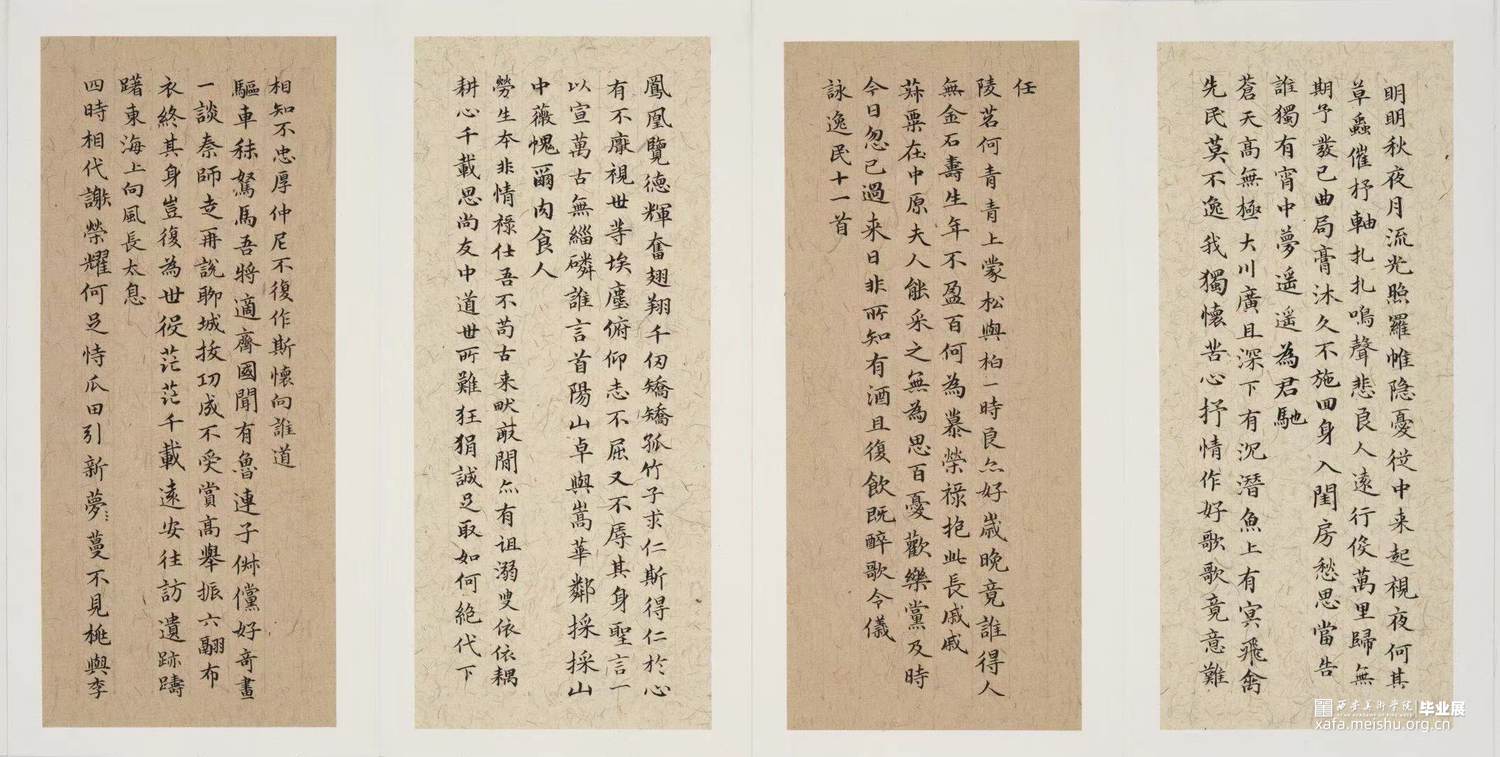 明明秋夜月流光照羅帷隐憂從中来起視夜何其
草蟲催抒軸扎扎鳴聲悲良人遠行役萬里歸無
期予髮已曲局膏沐久不施回身入閨房愁思當告
誰獨有宵中夢遥遥為君馳
蒼天高無極大川廣且深下有沉潛魚上有冥飛禽
先民莫不逸我獨懷苦心抒情作好歌歌竟意難
任
陵苕何青青上蒙松與柏一時良亦好歲晚竟誰得人
無金石壽生年不盈百何為慕榮禄抱此長戚戚
蓀粟在中原夫人能采之無為思百憂歡樂黨及時
今日忽已過来日非所知有酒且復飲既醉歌令儀
詠逸民十一首
鳳凰覽德輝奮翅翔千仞矯矯孤竹子求仁斯得仁於心
有不靡視世等埃塵俯仰志不屈又不辱其身聖言一
以宣萬古無緇磷誰言首陽山卓與嵩華鄰採採山
中薇愧爾肉食人
勞生本非情禄仕吾不苟古来畎畝間亦有诅溺叟依依耦
耕心千載思尚友中道世所難狂狷誠足取如何絶代下
相知不忠厚仲尼不復作斯懷向誰道
驅車秣駑馬吾將適齊國聞有魯連子俶儻好奇畫
一談秦師走再説聊城拔功成不受賞高舉振六翮布
衣終其身豈復為世役茫茫千載遠安往訪遺跡躊
躇東海上向風長太息
四時相代謝榮耀何足恃瓜田引新夢蔓不見桃與李
西安美术学院 毕业展
xafa.meishu.org.cn